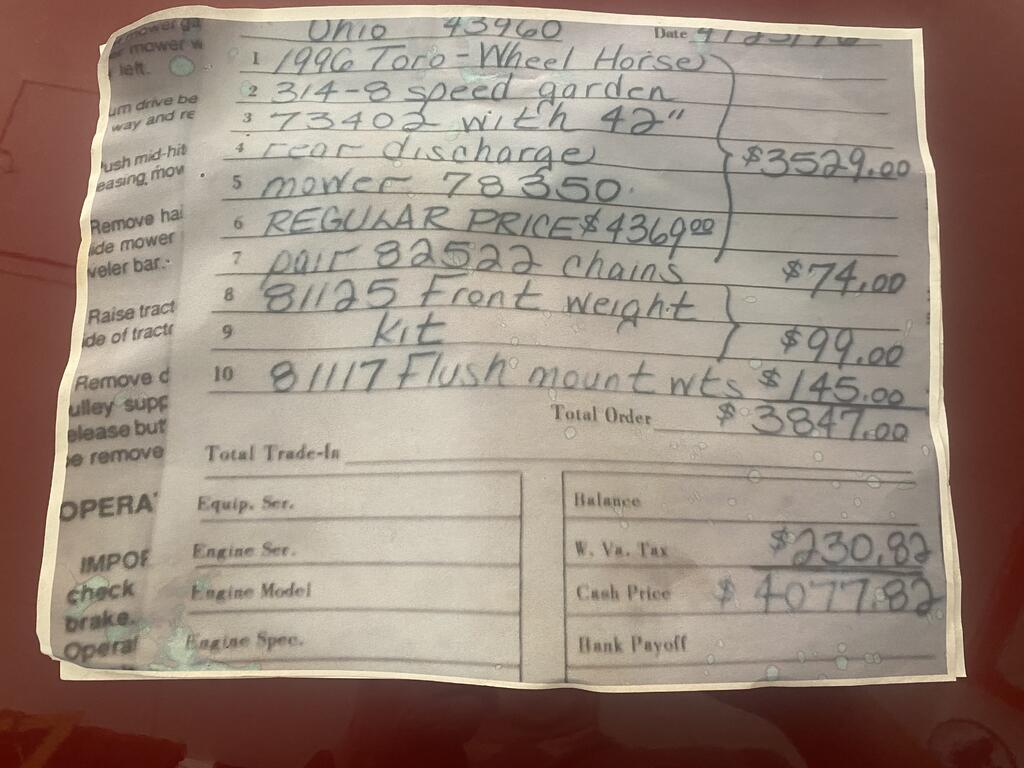 Ohio 43960 Date
1 1996 Toro - Wheel Horse
2 314-8 speed garden
3 73402 with 42"
4 rear discharge $3529.00
5 mower 78350.
6 REGULAR PRICE $4369 00
7 pair 82522 chains $74.00
8 81125 Front weight
9 kit $99.00
10 81117 Flush mount wts $145.00
Total Order $3847.00
Total Trade-In
Equip. Ser. Balance
Engine Ser. W. Va. Tax $230.82
Engine Model Cash Price $4077.82
Engine Spec. Bank Payoff
mower w
left.
um drive be
way and re
ush mid-hit
easing, mov
Remove hai
ide mower
veler bar.
Raise tract
ide of tractr
Remove d
ulley supp
elease but
e remove
OPERA
IMPOF
check
brake.
Operat